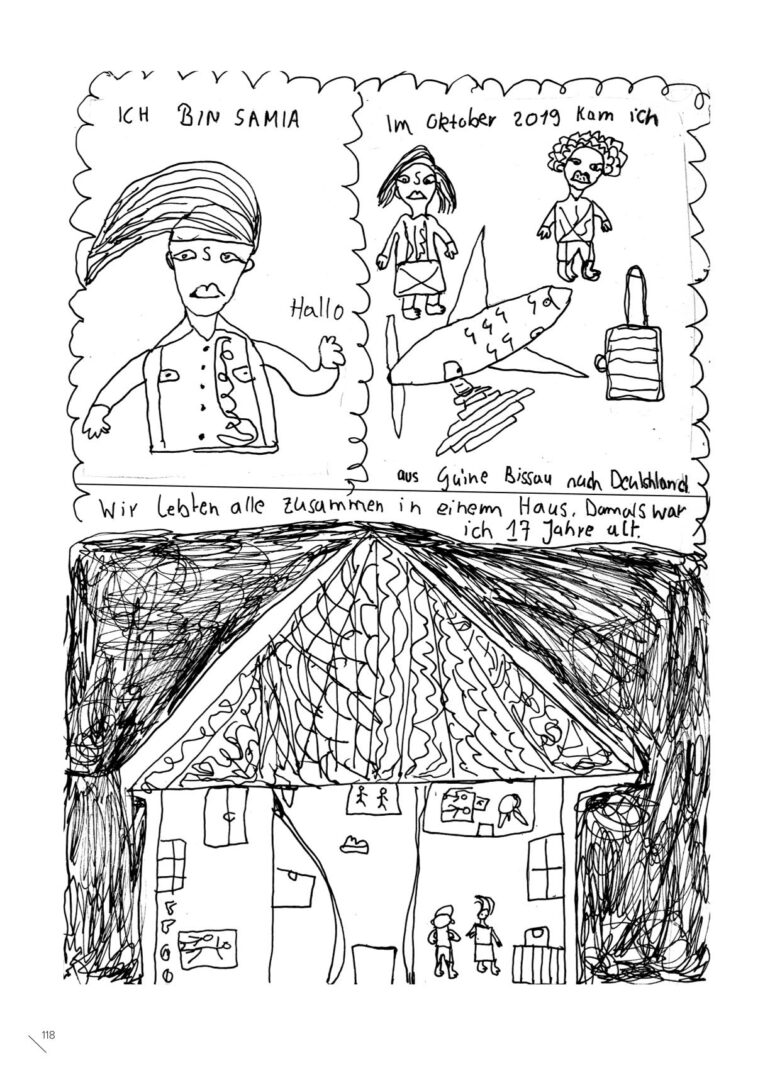 ICH BIN SAMIA
Hallo
Im Oktober 2019 kam ich
aus Guine Bissau nach Deutshland
Wir lebten alle zusammen in einem Haus. Damals war
ich 17 Jahre alt.
118